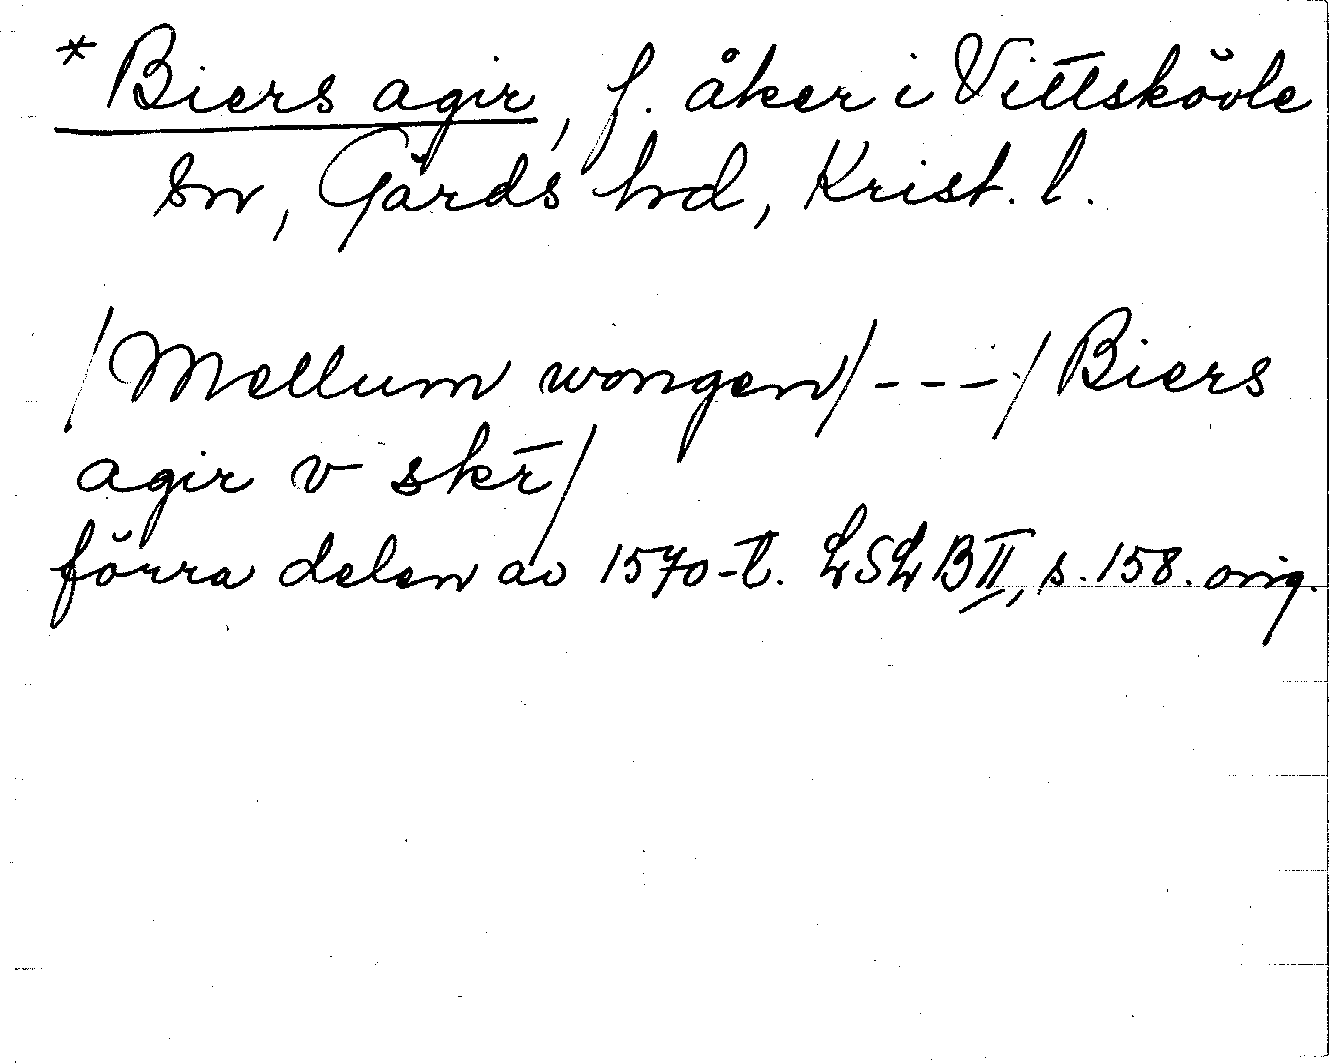 * Biers agir, f. åker i Vittskövle
sn, Gärds hd, Krist. l.
/Mellum wongen/---/Biers
agir v skr̄/
förra delen av 1570-t. LSLB II, s. 158. orig.